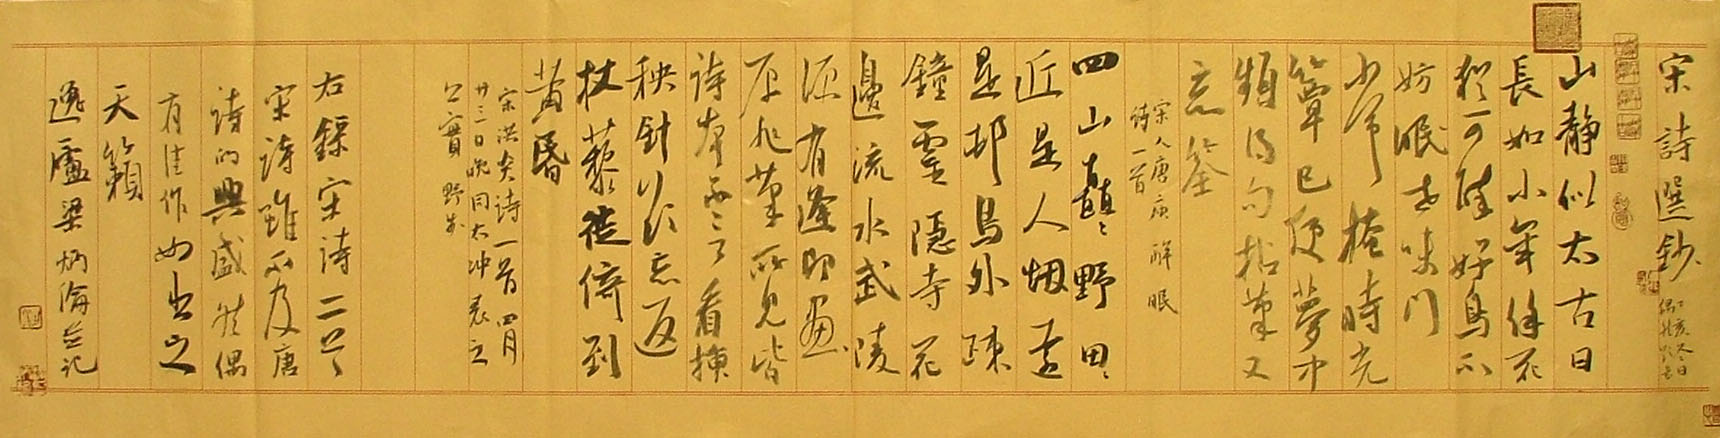 宋詩選鈔
丁亥冬日
山靜似太古日
長如小年餘花
猶可醉好鳥不
妨眠世味門
常掩時光
簟已便夢中
頻得句拈筆又
忘筌
宋人唐庚 醉眠
詩一首
四山矗々野田々
近是人烟遠
是邨鳥外疎
鐘靈隱寺花
邊流水武陵
源有逢即畫
原非筆所見皆
詩本不言看插
秧針欲忘返
杖藜徙倚到
黃昏
宋洪炎詩一首 四月
廿三日晚同太冲表之
公實野步
右錄宋詩二首
宋詩雖不及唐
詩的興盛然偶
有佳作如出之
天籟
逸廬梁炳倫並記